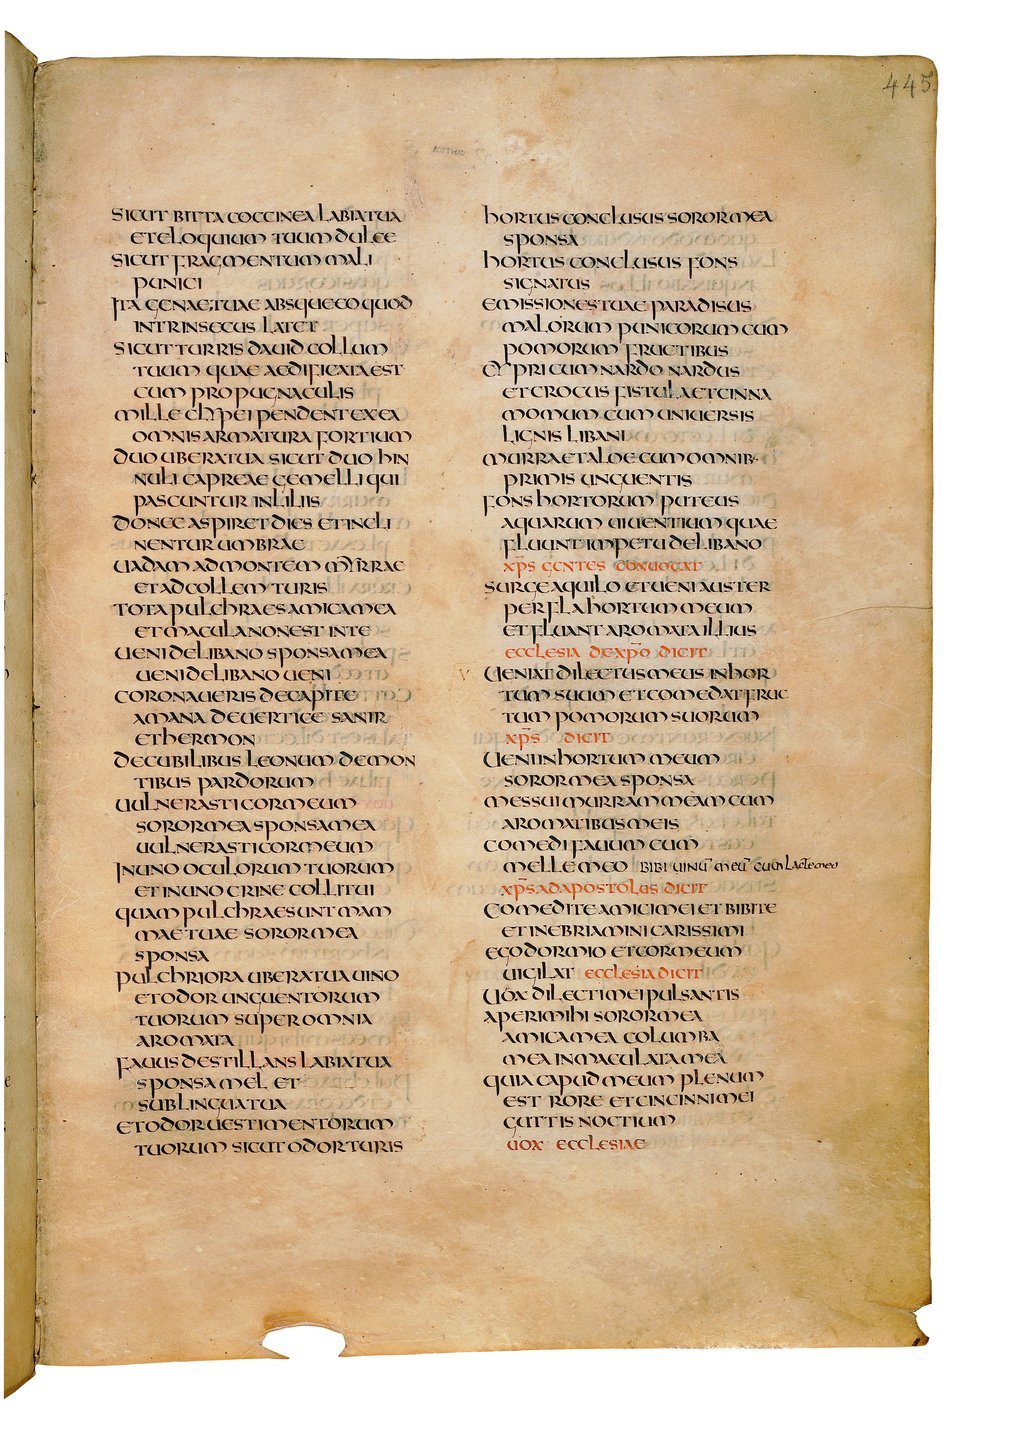 445
SICUT BITTA COCCINEA LABIA TUA
ET ELOQUIUM TUUM DULCE
SICUT FRAGMENTUM MALI
PUNICI
ITA GENAE TUAE ABSQUE EO QUOD
INTRINSECUS LATET
SICUT TURRIS DAUID COLLUM
TUUM QUAE AEDIFICATA EST
CUM PROPUGNACULIS
MILLE CLYPEI PENDENT EX EA
OMNIS ARMATURA FORTIUM
DUO UBERA TUA SICUT DUO HIN
NULI CAPREAE GEMELLI QUI
PASCUNTUR IN LILIIS
DONEC ASPIRET DIES ET INCLI
NENTUR UMBRAE
UADAM AD MONTEM MYRRAE
ET AD COLLEM TURIS
TOTA PULCHRA ES AMICA MEA
ET MACULA NON EST IN TE
UENI DE LIBANO SPONSA MEA
UENI DE LIBANO UENI
CORONAUERIS DE CAPITE
AMANA DE UERTICE SANIR
ET HERMON
DE CUBILIBUS LEONUM DE MON
TIBUS PARDORUM
UULNERASTI COR MEUM
SOROR MEA SPONSA MEA
UULNERASTI COR MEUM
IN UNO OCULORUM TUORUM
ET IN UNO CRINE COLLI TUI
QUAM PULCHRAE SUNT MAM
MAE TUAE SOROR MEA
SPONSA
PULCHRIORA UBERA TUA UINO
ET ODOR UNGUENTORUM
TUORUM SUPER OMNIA
AROMATA
FAUUS DESTILLANS LABIA TUA
SPONSA MEL ET
SUB LINGUA TUA
ET ODOR UESTIMENTORUM
TUORUM SICUT ODOR TURIS
HORTUS CONCLUSUS SOROR MEA
SPONSA
HORTUS CONCLUSUS FONS
SIGNATUS
EMISSIONES TUAE PARADISUS
MALORUM PUNICORUM CUM
POMORUM FRUCTIBUS
CYPRI CUM NARDO NARDUS
ET CROCUS FISTULA ET CINNA
MOMUM CUM UNIUERSIS
LIGNIS LIBANI
MURRA ET ALOE CUM OMNIB·
PRIMIS UNGUENTIS
FONS HORTORUM PUTEUS
AQUARUM UIUENTIUM QUAE
FLUUNT IMPETU DE LIBANO
XPS GENTES CONUOCAT
SURGE AQUILO ET UENI AUSTER
PERFLA HORTUM MEUM
ET FLUANT AROMATA ILLIUS
ECCLESIA DE XPO DICIT
UENIAT DILECTUS MEUS IN HOR
TUM SUUM ET COMEDAT FRUC
TUM POMORUM SUORUM
XPS DICIT
UENI IN HORTUM MEUM
SOROR MEA SPONSA
MESSUI MURRAM MEAM CUM
AROMATIBUS MEIS
COMEDI FAUUM CUM
MELLE MEO BIBI UINŪ MEŪ CUM LACTE MEO
XPS AD APOSTOLUS DICIT
COMEDITE AMICI MEI ET BIBITE
ET INEBRIAMINI CARISSIMI
EGO DORMIO ET COR MEUM
UIGILAT ECCLESIA DICIT
UOX DILECTI MEI PULSANTIS
APERI MIHI SOROR MEA
AMICA MEA COLUMBA
MEA INMACULATA MEA
QUIA CAPUD MEUM PLENUM
EST RORE ET CINCINNI MEI
GUTTIS NOCTIUM
UOX ECCLESIAE